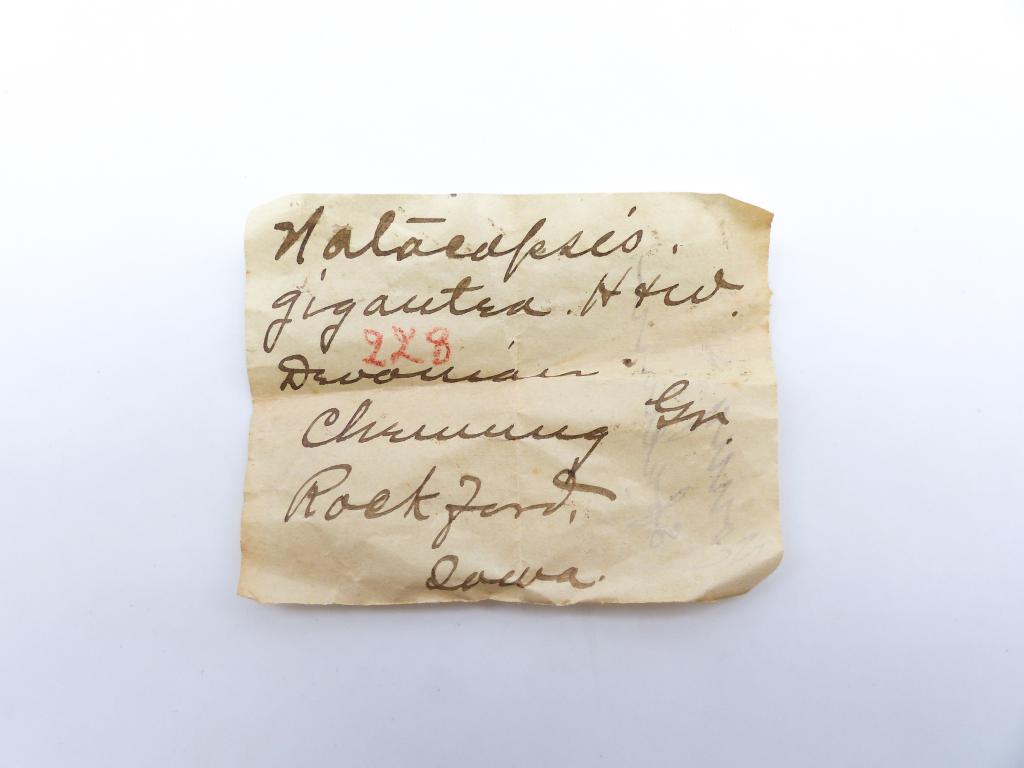 Naticopsis.
gigantea. H & W.
228
Devonian.
Chemung Gr.
Rockford,
Iowa.